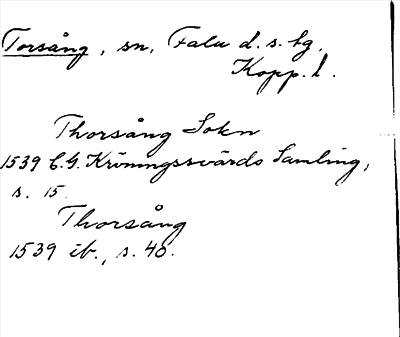 Torsång, sn, Falu d. s. tg,
Kopp. l.
Thorsång Sokn
1539 C. G. Kröningssvärds Samling,
s. 15.
Thorsång
1539 ib., s. 40.